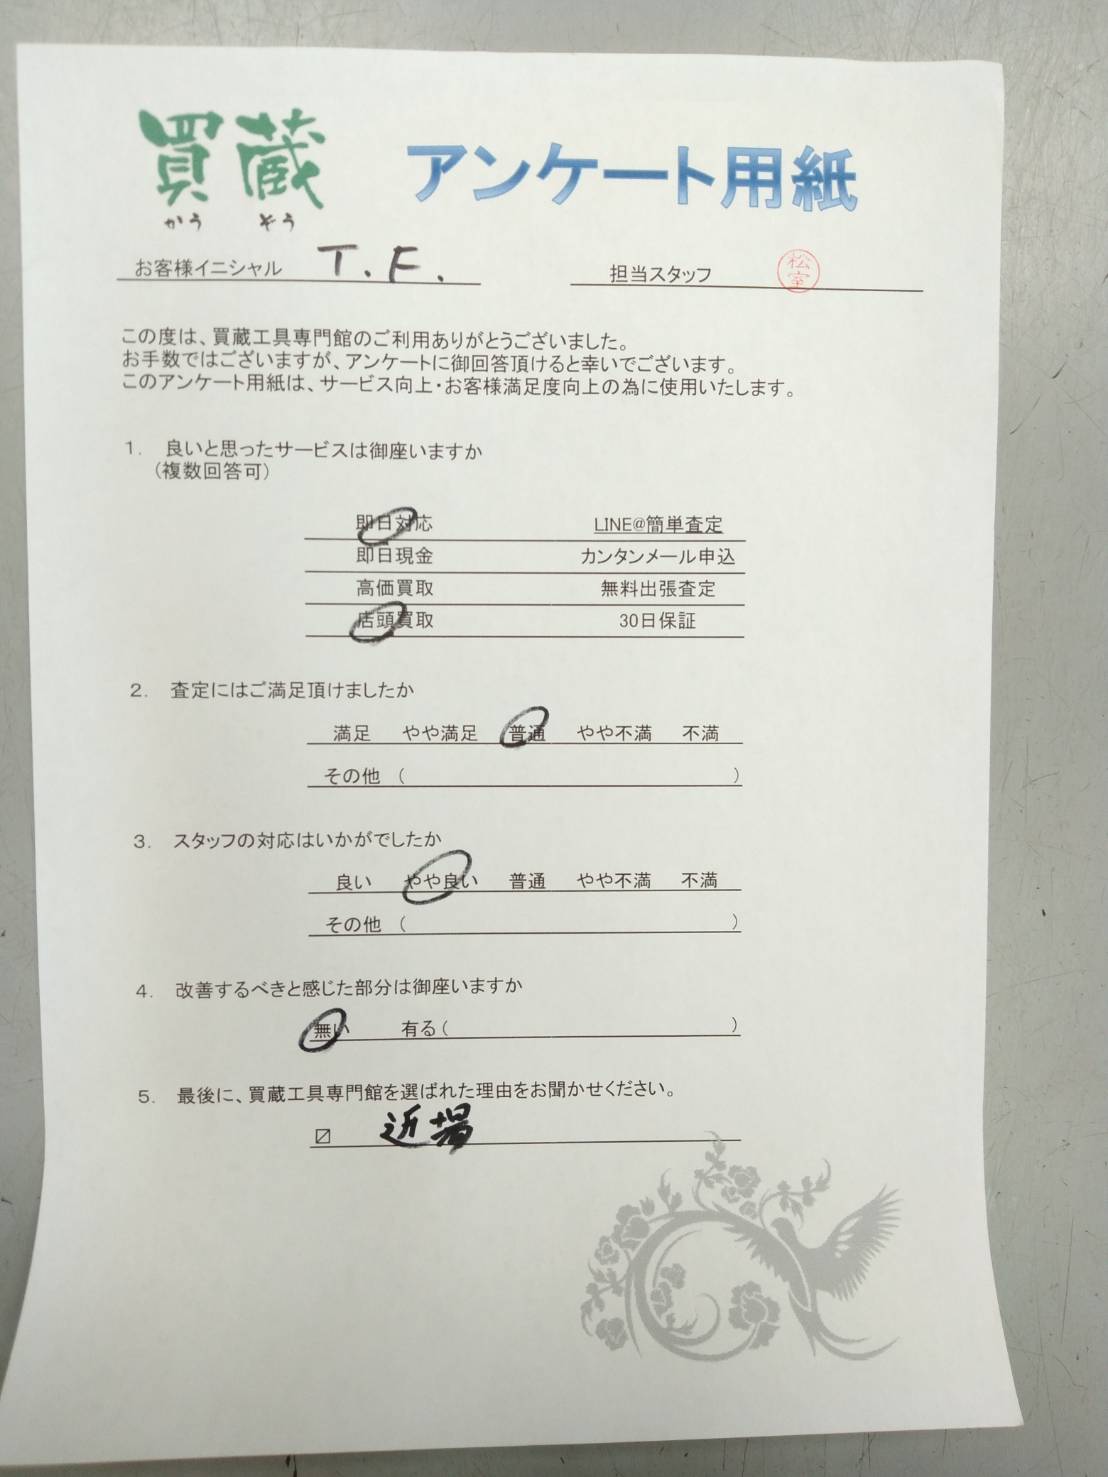 買蔵
かうぞう
アンケート用紙
お客様イニシャル T.F. 担当スタッフ 松室
この度は、買蔵工具専門館のご利用ありがとうございました。
お手数ではございますが、アンケートに御回答頂けると幸いでございます。
このアンケート用紙は、サービス向上・お客様満足度向上の為に使用いたします。
1. 良いと思ったサービスは御座いますか
(複数回答可)
即日対応 LINE@簡単査定
即日現金 カンタンメール申込
高価買取 無料出張査定
店頭買取 30日保証
2. 査定にはご満足頂けましたか
満足 やや満足 普通 やや不満 不満
その他 ( )
3. スタッフの対応はいかがでしたか
良い やや良い 普通 やや不満 不満
その他 ( )
4. 改善するべきと感じた部分は御座いますか
無い 有る( )
5. 最後に、買蔵工具専門館を選ばれた理由をお聞かせください。
〼 近場